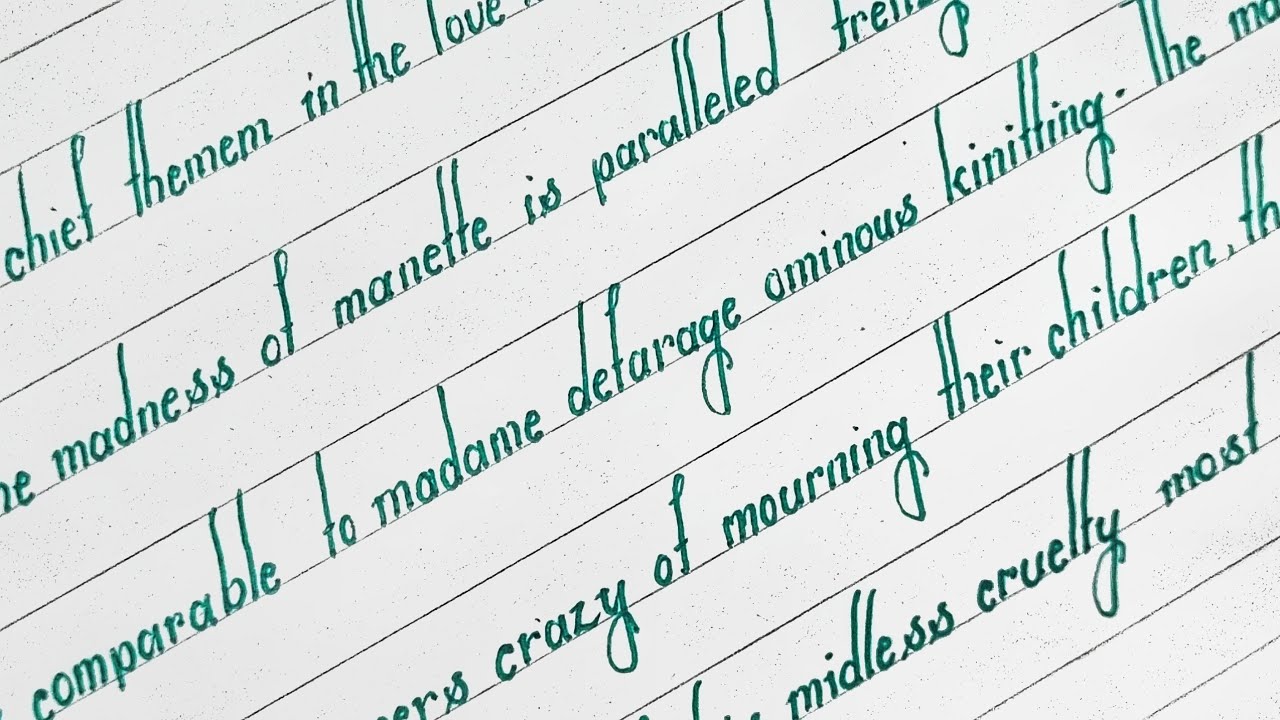 chief themem in the love
madness of manette is paralleled
comparable to madame defarage ominous kinitting. The
crazy of mourning their children, th
midless cruelty most